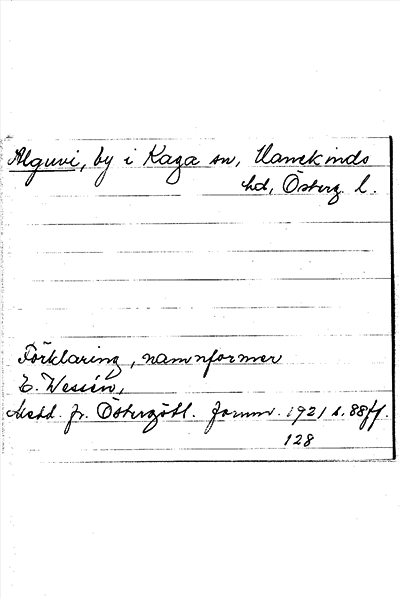 Alguvi, by i Kaga sn, Hanekinds
hd, Österg. l.
Förklaring, namnformer
E. Wessén,
Medd. fr. Östergötl. fornm. 1921 s. 88ff.
128